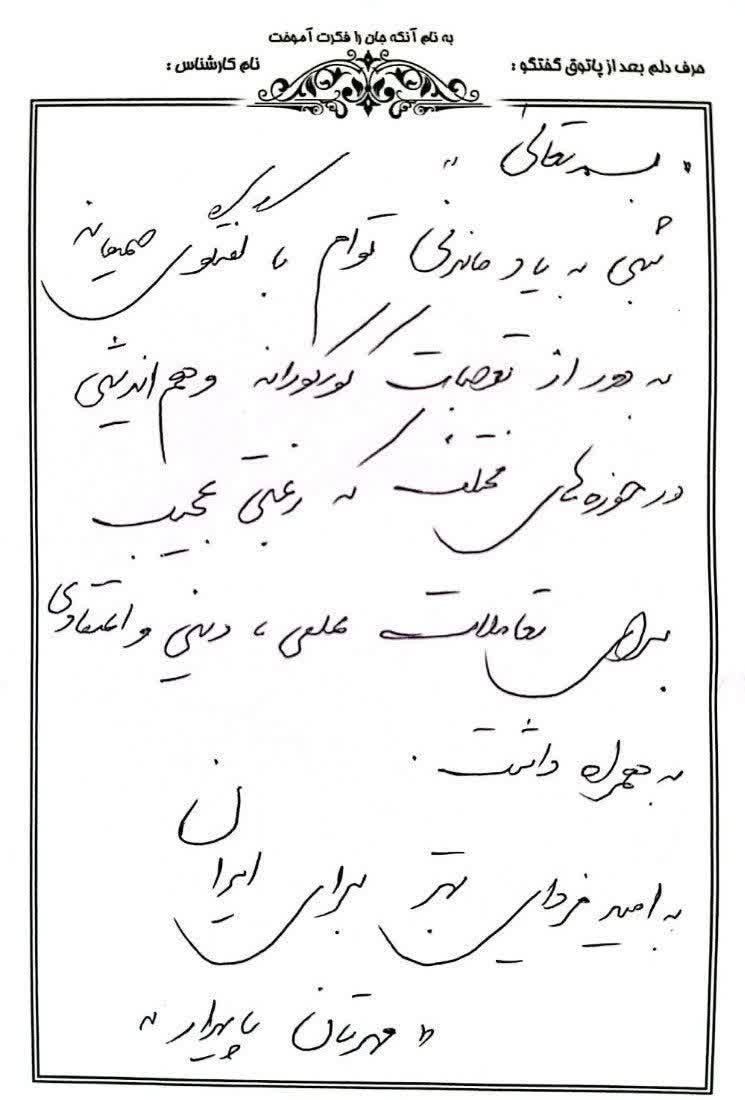 به نام آنکه جان را فکرت آموخت
حرف دلم بعد از پاتوق گفتگو :
نام کارشناس :
" بسمه تعالی "
شبی به یاد ماندنی توام با گفتگوی صمیمانه
به دور از تعصبات کورکورانه و هم اندیشی
در حوزه های مختلف که رغبتی عجیب
برای تعاملات علمی ، دینی و اعتقادی
به همراه داشت .
به امید فردایی بهتر برای ایران
" مهرتان پایدار "